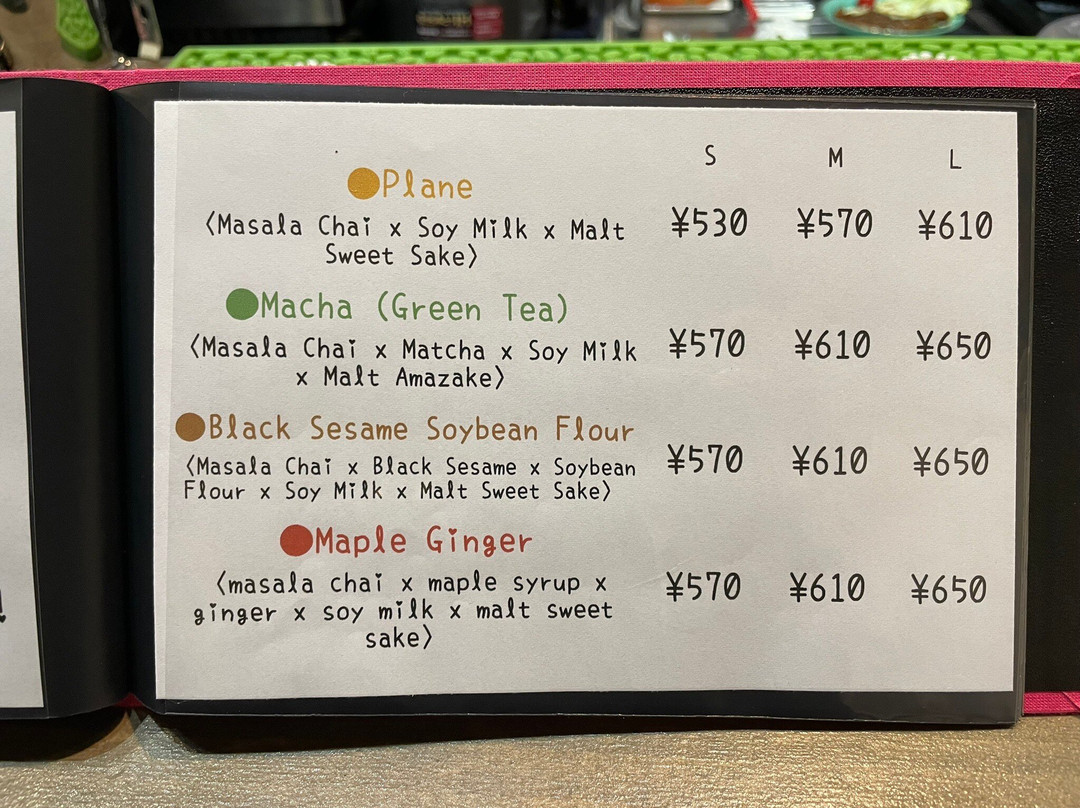 S M L
●Plane
〈Masala Chai x Soy Milk x Malt
Sweet Sake〉
¥530 ¥570 ¥610
●Macha (Green Tea)
〈Masala Chai x Matcha x Soy Milk
x Malt Amazake〉
¥570 ¥610 ¥650
●Black Sesame Soybean Flour
〈Masala Chai x Black Sesame x Soybean
Flour x Soy Milk x Malt Sweet Sake〉
¥570 ¥610 ¥650
●Maple Ginger
〈masala chai x maple syrup x
ginger x soy milk x malt sweet
sake〉
¥570 ¥610 ¥650